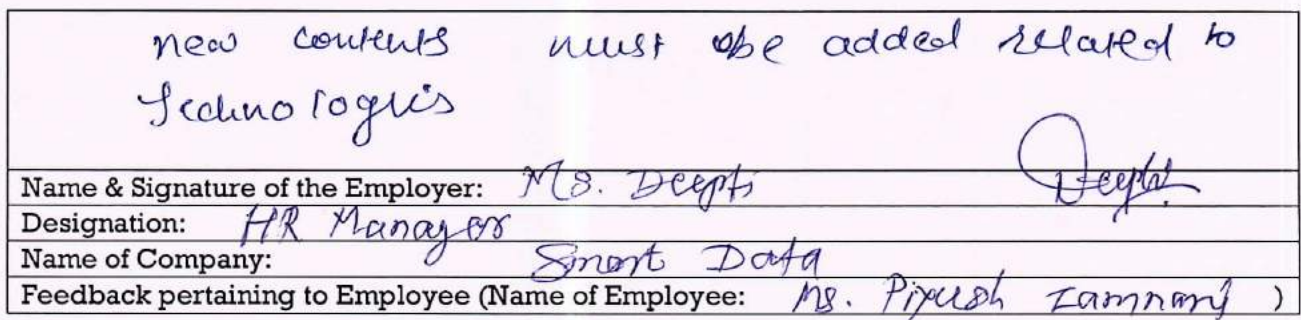 new contents must be added related to
Technologies
Name & Signature of the Employer: Ms. Deepti Deepti
Designation: HR Manager
Name of Company: Smart Data
Feedback pertaining to Employee (Name of Employee: Ms. Piyush )